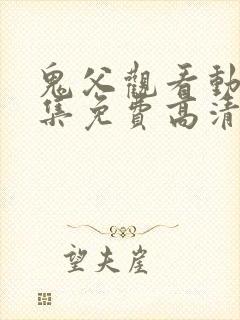 鬼父觀看動
集免費高清
望夫崖